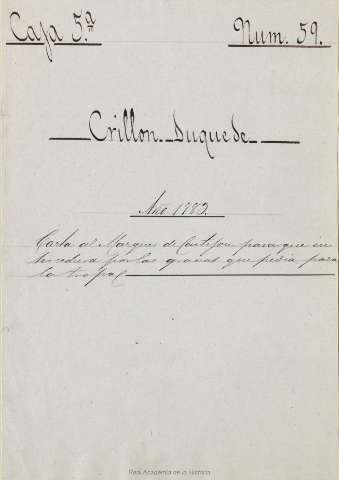 Caja 5.ª Num. 59.
Crillon. Duque de
Año 1782.
Carta al Marques de Contejon para que in
tercediera por las gracias que pedia para
la tropa
Real Academia de la Historia